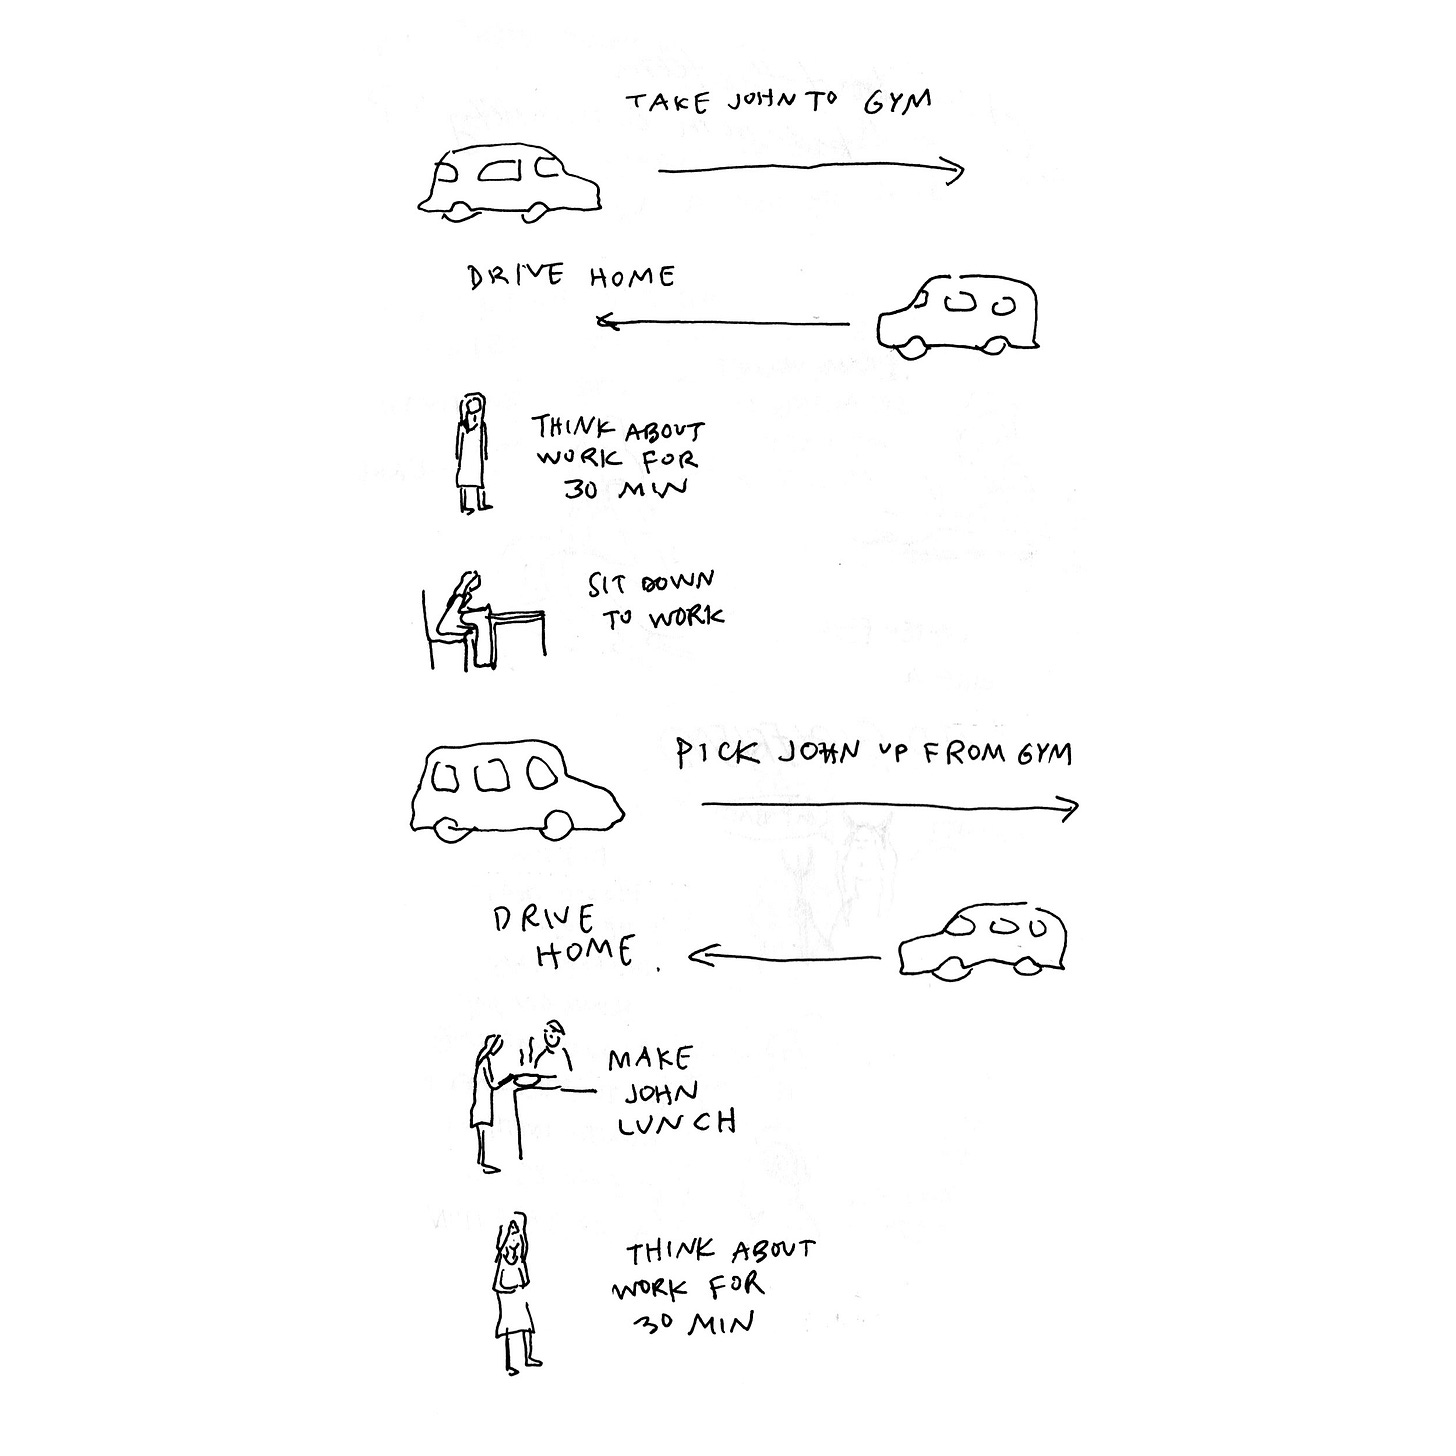 TAKE JOHN TO GYM
DRIVE HOME
THINK ABOUT
WORK FOR
30 MIN
SIT DOWN
TO WORK
PICK JOHN UP FROM GYM
DRIVE
HOME.
MAKE
JOHN
LUNCH
THINK ABOUT
WORK FOR
30 MIN